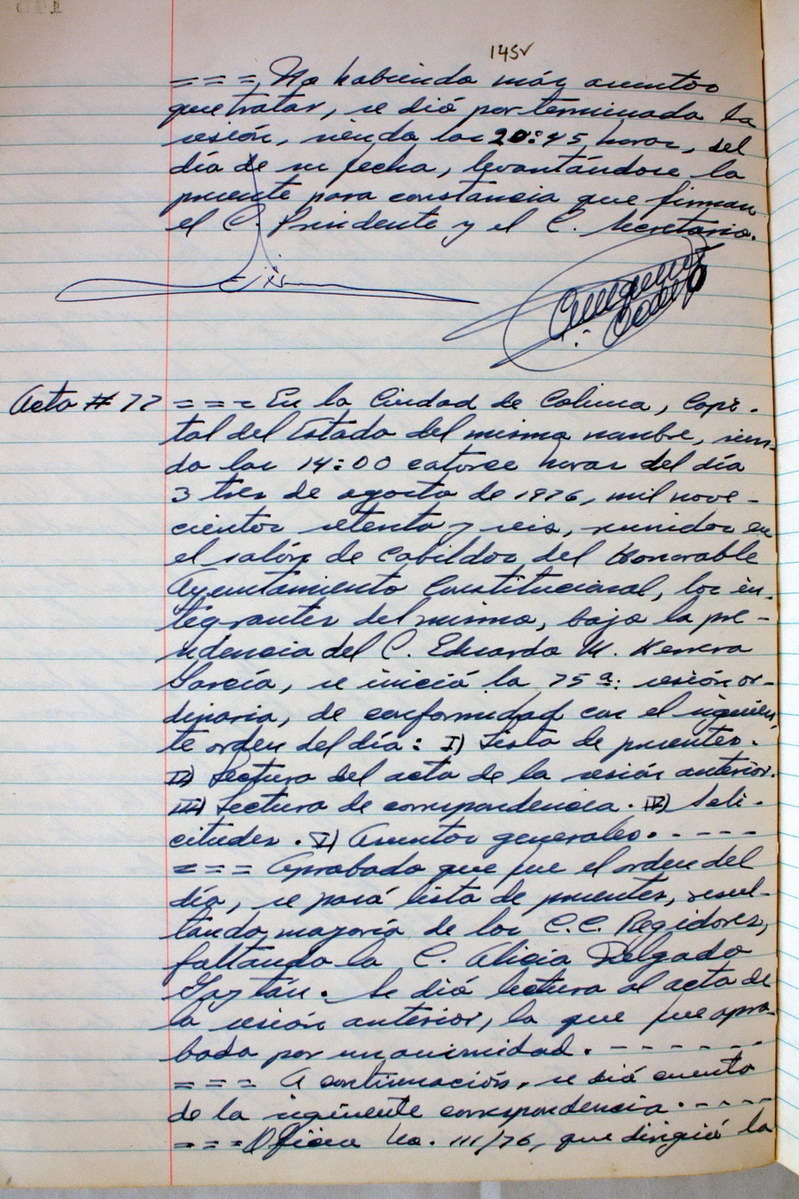 145v
=== No habiendo más asuntos
que tratar, se dió por terminada la
sesión, siendo las 20:45 horas, del
día de su fecha, levantándose la
presente para constancia que firman
el C. Presidente y el C. Secretario.
Acta # 77 === En la Ciudad de Colima, Capi-
tal del Estado del mismo nombre, sien-
do las 14:00 catorce horas del día
3 tres de agosto de 1976, mil nove-
cientos setenta y seis, reunidos en
el salón de Cabildos del Honorable
Ayuntamiento Constitucional, los in-
tegrantes del mismo, bajo la pre-
sidencia del C. Eduardo M. Herrera
García, se inició la 75a. sesión or-
dinaria, de conformidad con el siguien-
te orden del día: I) Lista de presentes.
II) Lectura del acta de la sesión anterior.
III) Lectura de correspondencia. IV) Soli-
citudes. V) Asuntos generales. - - - -
=== Aprobado que fue el orden del
día, se pasó lista de presentes, resul-
tando mayoría de los C.C. Regidores,
faltando la C. Alicia Delgado
Gaytán. Se dió lectura al acta de
la sesión anterior, la que fue apro-
bada por unanimidad. - - - - - - -
=== A continuación, se dió cuenta
de la siguiente correspondencia. - - - -
=== Oficio No. 111/76, que dirigió la